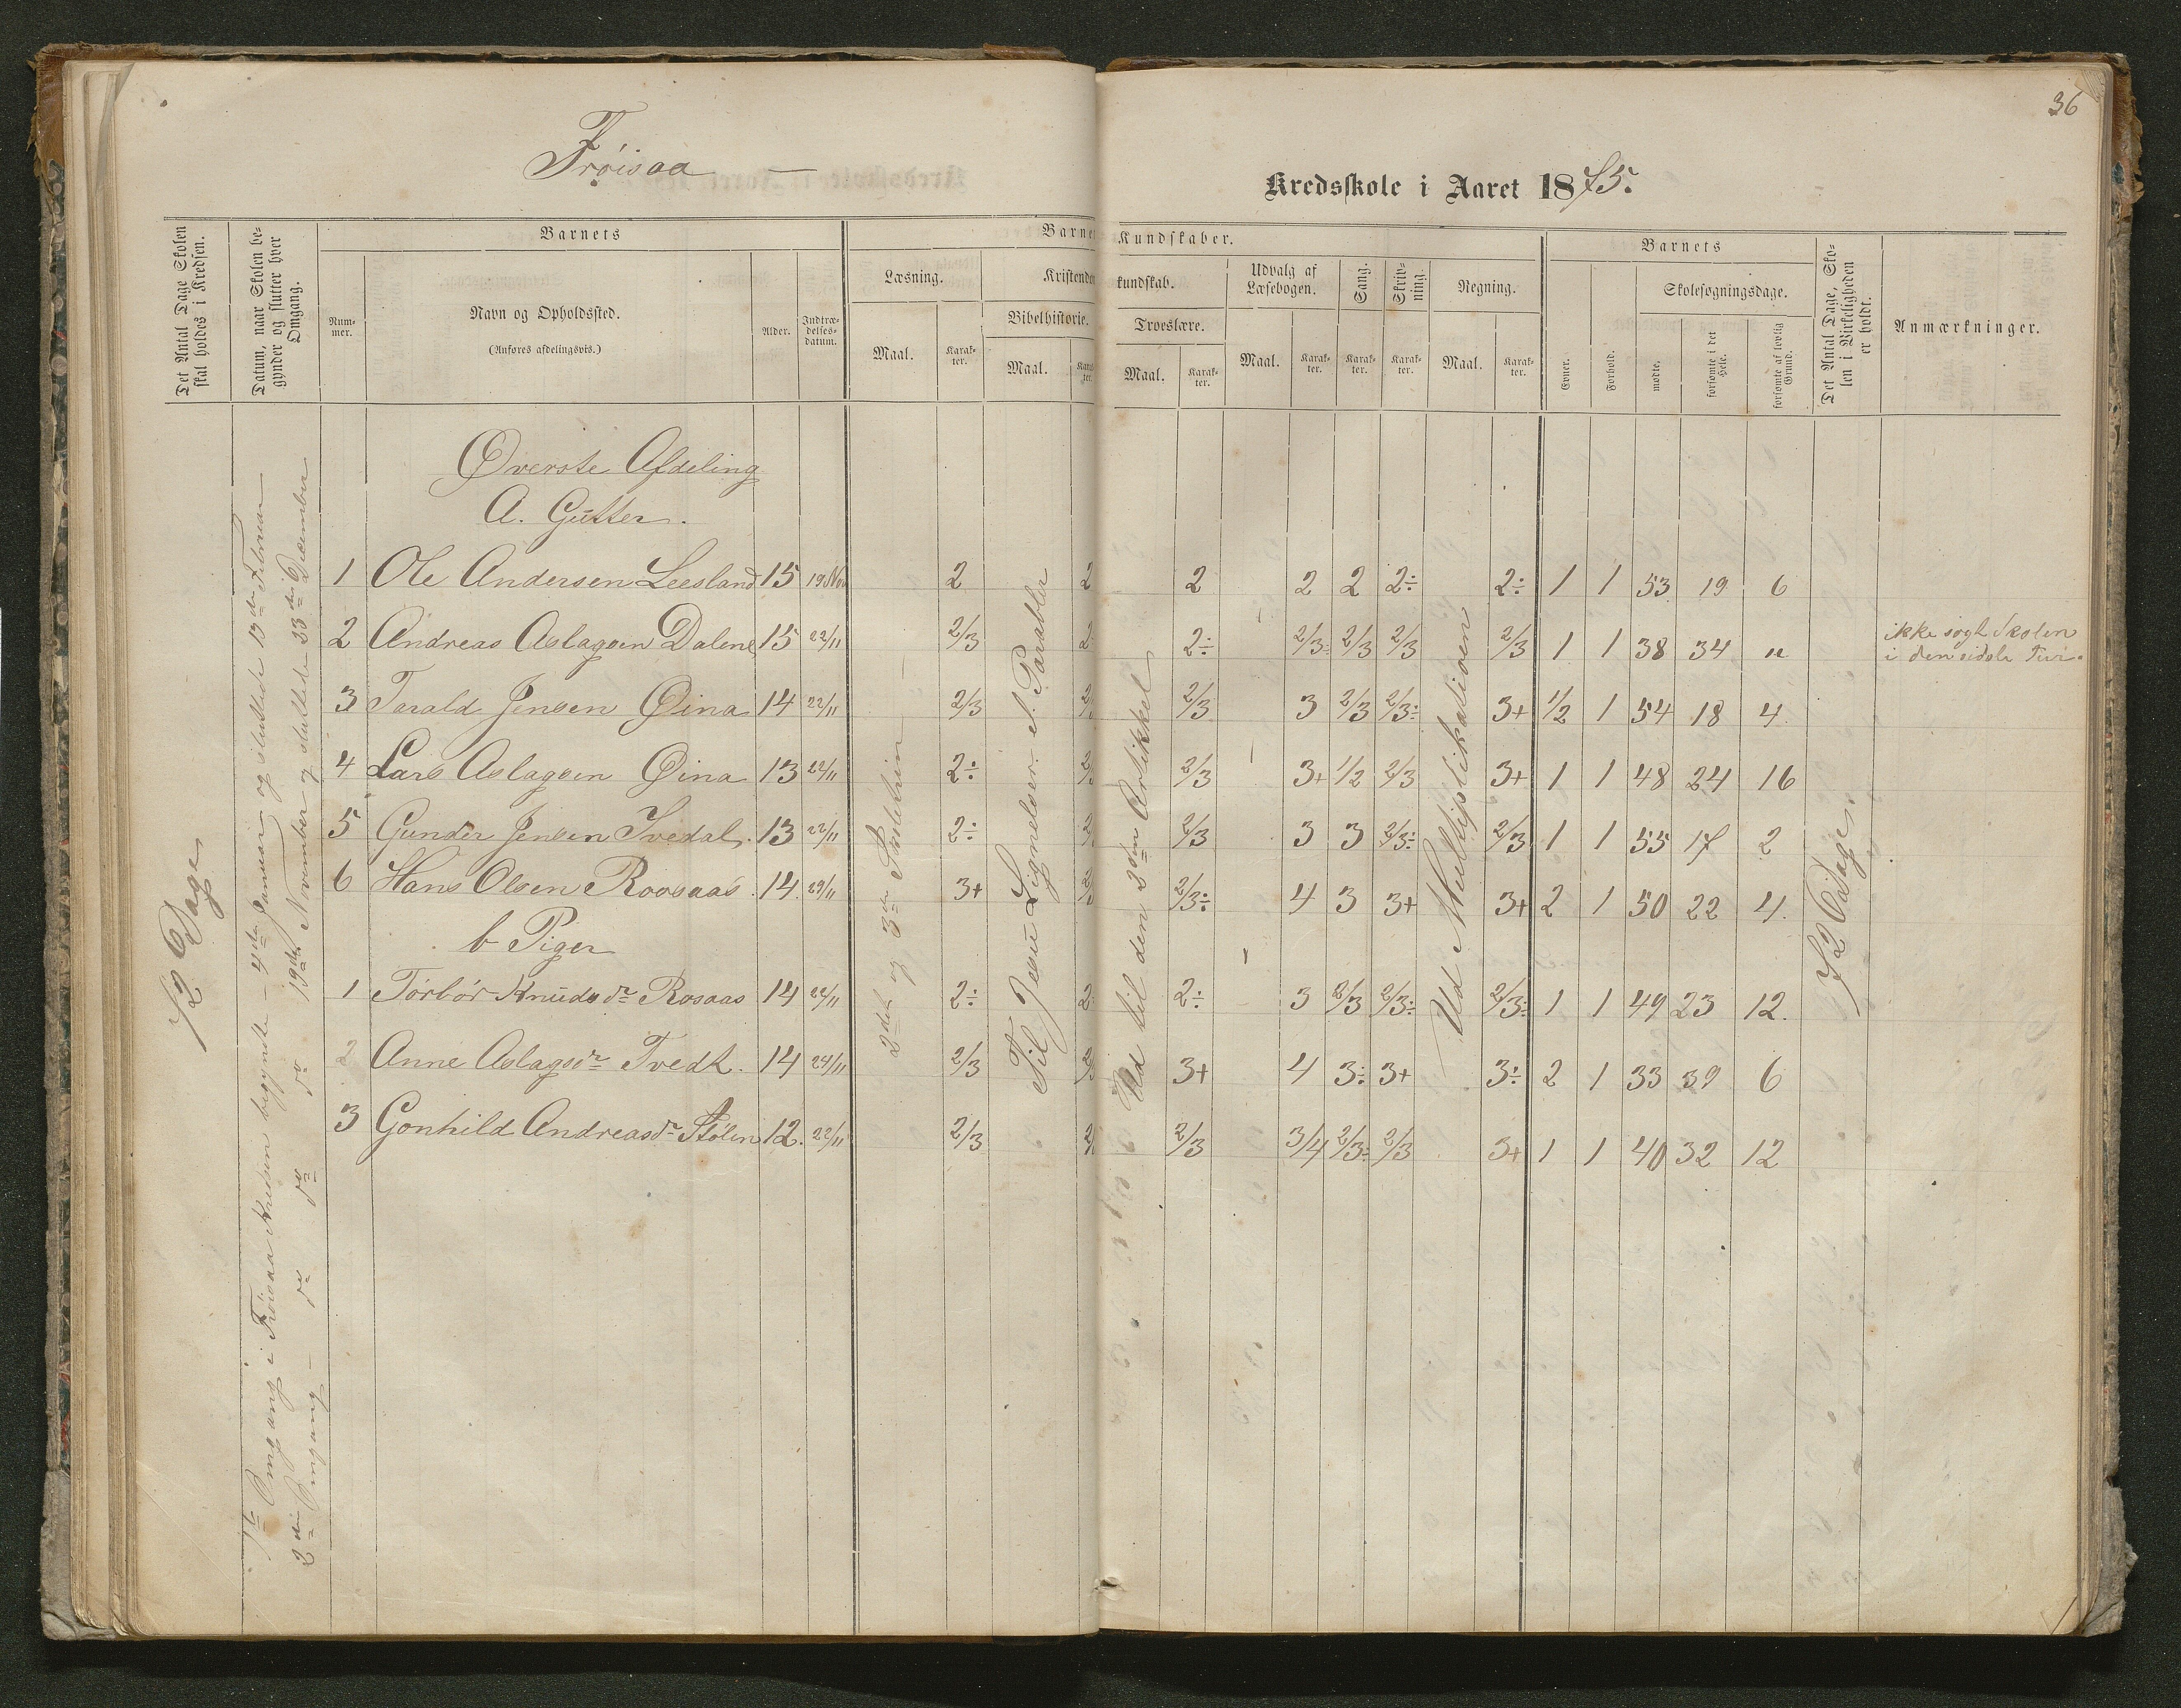 36
Frøisaa —
Kredsskole i Aaret 1875.
Det Antal Dage Skolen skal holdes i Kredsen.
Datum, naar Skolen begynder og slutter hver Omgang.
Barnets
Nummer.
Navn og Opholdssted.
(Anføres afdelingsvis.)
Alder.
Indtrædelsesdatum.
Barnets Kundskaber.
Læsning.
Maal.
Karakter.
Kristendomskundskab.
Bibelhistorie.
Maal.
Karakter.
Troeslære.
Maal.
Karakter.
Udvalg af Læsebogen.
Maal.
Karakter.
Sang.
Karakter.
Skrivning.
Karakter.
Regning.
Maal.
Karakter.
Barnets
Evner.
Forhold.
Skolesøgningsdage.
mødte.
forsømte i det Hele.
forsømte af lovlig Grund.
Det Antal Dage, Skolen i Virkeligheden er holdt.
Anmærkninger.
Øverste Afdeling
A. Gutter.
1 Ole Andersen Leesland 15 19 Nov 2 2 2 2 2 2÷ 2÷ 1 1 53 19 6
2 Andreas Aslagsen Dalene 15 22/11 2/3 2÷ 2÷ 2/3÷ 2/3 2/3 2/3 1 1 38 34 " ikke søgt Skolen
i den sidste
3 Tarald Jensen Øina 14 22/11 2/3 2/3 2/3 3 2/3 2/3÷ 3+ 1/2 1 54 18 4
4 Lars Aslagsen Øina 13 22/11 2÷ 2/3 2/3 3+ 1/2 2/3 3+ 1 1 48 24 16
5 Gunder Jensen Ivedal. 13 22/11 2÷ 2/3 2/3 3 3 2/3÷ 2/3 1 1 55 17 2
6 Hans Olsen Roosaas. 14 29/11 3+ 2/3 2/3÷ 4 3 3+ 3+ 2 1 50 22 4.
b Piger
1 Tørbør Knudsdr Rosaas 14 22/11 2÷ 2÷ 2÷ 3 2/3 2/3÷ 2/3÷ 1 1 49 23 12.
2 Anne Aslagsdr Tvedt. 14 24/11 2/3 2/3 3+ 4 3÷ 3+ 3÷ 2 1 33 39 6
3 Gonhild Andreasdr Stølen 12. 22/11 2/3 2/3 2/3 3/4 2/3÷ 2/3 3+ 1 1 40 32 12
72 Dage
1ste Omgang i Frøisaa Kredsen begyndte – 4de Januar og sluttede 13de Februar
2den Omgang – do do do 19de November og sluttede 23de December
2det og 3die
Til Jesu Lignelser el. Parabler
Ud til den 3die Artikkel
Ud Multiplikationen
72 Dage